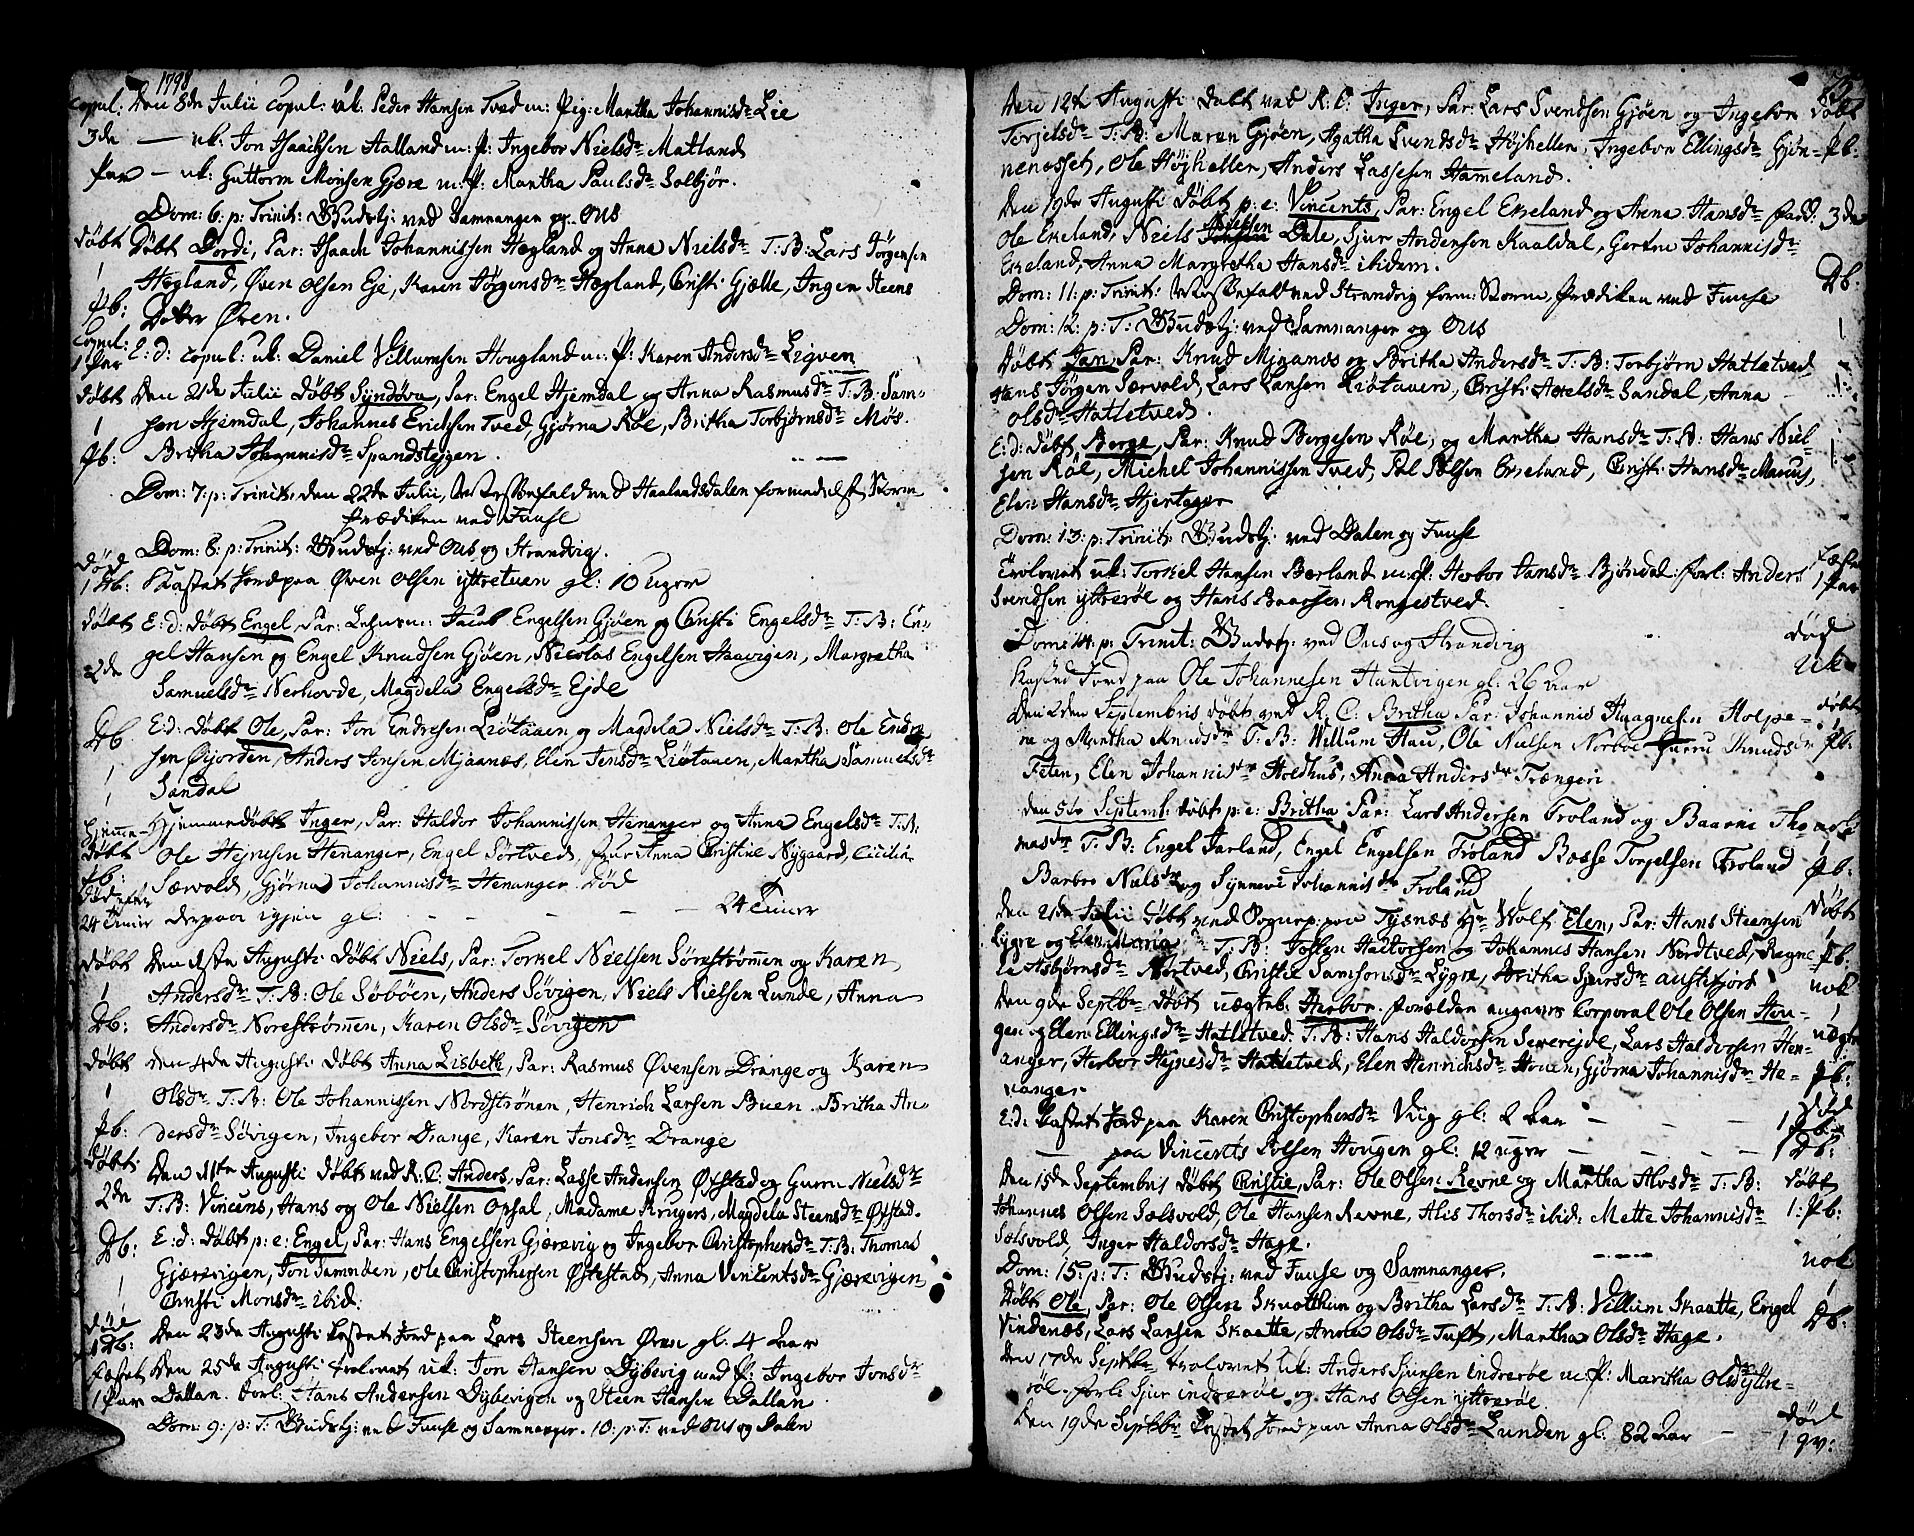 1798
copul: Den 8de Julii copul: uk: Peder Hansen Tved m: Pig: Martha Johannisdr Lie
3de — uk: Jon Isaachsen Aalland m: P: Ingebor Nielsdr Matland
Par — uk: Guttorm Monsen Gjære m: P: Martha Paulsdr Solbjør.
Dom: 6: p: Trinit: Gudstj: ved Samnanger og Ous
døbt Døbt Dordi, Par: Isaach Johannissen Hægland og Anna Nielsdr T: B: Lars Jørgensen
1 Hægland, Øven Olsen Eje, Karen Jørgensdr Hægland, Christi Gjelle, Inger Steens
Pb: Døtter Øven.
Copul: E: d: copul: uk: Daniel Villumsen Hougland m: P: Karen Andersdr Ligven
1 Par
døbt Den 21de Julii døbt Syndøva, Par: Engel Hjemdal og Anna Rasmusdr T: B: Sam-
1 son Hjemdal, Johannes Erichsen Tved, Gjørna Røe, Britha Torbjørnsdr Møs.
Pb: Britha Johannisdr Spandsteggen.
Dom: 7: p: Trinit: den 22de Julii, Messefald ved Haalandsdalen formedelst Storm
Prædiken ved Fuuse
Dom: 8: p: Trinit: Gudstj: ved Ous og Strandvig.
død
1 Db: Kastet Jord paa Øven Olsen yttretuen gl: 10 uger
døbt E: d: døbt Engel, Par: Jacob Engelsen Gjøen og Christi Engelsdr T: B: En-
2de gel Hansen og Engel Knudsen Gjøen, Nicolas Engelsen Haavigen, Margretha
Samuelsdr Nerhovde, Magdela Engelsdr Ejde
Db E: d: døbt Ole, Par: Jon Endresen Liøtauen og Magdela Nielsdr T: B: Ole Endre
1 sen Øijorden, Anders Jensen Mjaanæs, Elen Jensdr Liøtauen, Martha Samuelsdr
1 Sandal
Hjemme- Hjemmedøbt Inger, Par: Haldor Johannissen Henanger og Anna Engelsdr T: B:
døbt Ole Hejnesen Henanger, Engel Sørtved, Anna Christine Nygaard, Cicilia
Pb: Særvold, Gjørna Johannisdr Henanger. død
død efter
24 Timer derpaa igjen gl: — — — — 24 Timer
døbt Den 1ste Augusti døbt Niels, Par: Torkel Nielsen Sørestrømmen og Karen
1 Andersdr T: B: Ole Søbøen, Anders Søvigen, Niels Nielssen Lunde, Anna
Db: Andersdr Norestrømmen, Karen Olsdr Søvigen
døbt den 4de Augusti døbt Anna Lisbeth, Par: Rasmus Øvensen Drange og Karen
1 Olsdr T: B: Ole Johannissen Nordstrønen, Henrich Larsen Buen, Britha An-
Pb: dersdr Søvigen, Ingebor Drange, Karen Jonsdr Drange
døbt Den 11te Augusti døbt ved R: C: Anders, Par: Lasse Andersen Øvstad og Guru Nielsdr
2de T: B: Vincens, Hans og Ole Nielsen Opsal, Madame Krugers, Magdela Steensdr Øvstad.
Db: E: d: døbt p: e: Engel, Par: Hans Engelsen Gjærevig og Ingebor Christophersdr T: B: Thomas
1 Gjærevigen, Jon Samnøen, Ole Christophersen Østestad, Anna Vincentsdr Gjærevigen
Christi Monsdr ibid:
død
1 Db: Den 23de Augusti kastet Jord paa Lars Steensen Øven gl: 4 Aar
fæstet Den 25de Augusti trolovet uk: Jon Hansen Dybevig med P: Ingebor Jonsdr
1 Par Dallan. Forl: Hans Andersen Dybevigen og Steen Hansen Dallan.
Dom: 9: p: T: Gudstj: ved Fuuse og Samnanger. 10: p: T: ved Ous og Dalen
Den 12te Augusti døbt ved R: C: Inger, Par: Lars Svendsen Gjøen og Ingebor døbt
Torjelsdr T: B: Maren Gjøen, Agatha Svendsdr Højheller, Ingebor Ellingsdr Gjøn- Pb:
nenesset, Ole Højheller, Anders Lassesen Hameland.
Den 19de Augusti døbt p: e: Vincents, Par: Engel Eikeland og Anna Hansdr Fadd: 3de
Ole Eikeland, Niels Dale, Sjur Andersen Kaaldal, Gertru Johannisdr
Eikeland, Anna Margretha Hansdr ibidem. Db:
Dom: 11: p: Trinit: Messefald ved Strandvig form: Storm, Prædiken ved Fuuse
Dom: 12: p: T: Gudstj: ved Samnanger og Ous 1
Døbt Jan, Par: Knud Mjaanæs og Britha Andersdr T: B: Torbjørn Hatletved
Hans Jørgen Særvold, Lars Larsen Liøtauen, Christi Axelsdr Sandal, Anna 1
Olsdr Hatletved.
E: d: døbt Berge, Par: Knud Bergesen Røe, og Martha Hansdr T: B: Hans Niel- 1
sen Røe, Michel Johannissen Tved, Pol Polsen Eikeland, Christi Hansdr Marcus,
Elen Hansdr Hjertager
Dom: 13: p: Trinit: Gudstj: ved Dalen og Fuuse
Trolovet uk: Torkel Hansen Børland m: P: Herbor Jansdr Bjøndal: Forl: Anders Fæstet
Svendsen yttrerøe og Hans Baarsen Rongestved. 1 Par
Dom: 14: p: Trinit: Gudstj: ved Ous og Strandvig død
Kasted Jord paa Ole Johannesen Hantvigen gl: 26 Aar
Den 2den Septembris døbt ved R. C: Britha Par: Johannis Haagnesen Holpe- døbt
ne og Martha Knudsdr T: B: Willum Hau, Ole Nielsen Norbøe Guru Knudsdr Pb:
Feten, Elen Johannisdr Holdhus, Anna Andersdr Trængeri
den 5te Septemb: døbt p: e: Britha Par: Lars Andersen Froland og Baarni Tho-
masdr T: B: Engel Jarland, Engel Engelsen Froland Baarse Torgelsen Froland Pb:
Barbro Nielsdr og Synneve Johannisdr Froland
Den 21de Julii døbt ved Sogner: paa Tysnæs Hr Wolf Elen, Par: Hans Steensen døbt
Lygre og Elen Maria T: B: Josten Haldorsen og Johannis Hansen Nordtved, Regne- Pb:
le Asbjørnsdr Nortved, Christie Samsonsdr Lygre, Britha Sjursdr Austefjord nok
Den 9de Septbr døbt uægteb: Herbor. Forældre angaves Corporal Ole Olsen Hou- 1
gen og Elen Ellingsdr Hatletved. T: B: Hans Haldorsen Severejde, Lars Haldorsen Hen- uægte
anger, Herbor Hejnesdr Hatletved, Elen Henrichsdr Houen, Gjørna Johannisdr He- Pb:
nanger
E: d: Kastet Jord paa Karen Christophersdr Viig gl: 2 Aar — — — død
1 Pb:
— paa Vincents Polsen Hougen gl: 12 uger — — — — 1 Db:
Den 15de Septembri døbt Christie, Par: Ole Olsen Revne og Martha Alvsdr T: B: døbt
Johannes Olsen Solsvold, Ole Hansen Revne, Alis Thorsdr ibid: Mette Johannisdr 1: Pb:
Solsvold, Inger Haldorsdr Hage.
Dom: 15: p: T: Gudstj: ved Fuuse og Samnanger. nok
Døbt Ole, Par: Ole Olsen Skuotthun og Britha Larsdr T: B: Villum Skaatte, Engel 1
Vindenæs, Lars Larsen Skaatte, Anna Olsdr Tuft, Martha Olsdr Hage. Db:
Den 17de Septbr trolovet uk: Anders Sjursen indrerøe m: P: Maritha Olsdr yttre-
røe. Forl: Sjur indrerøe og Hans Olsen yttrerøe.
Den 19de Septbr kastet Jord paa Anna Olsdr Lunden gl: 82 Aar — død
1 qv: